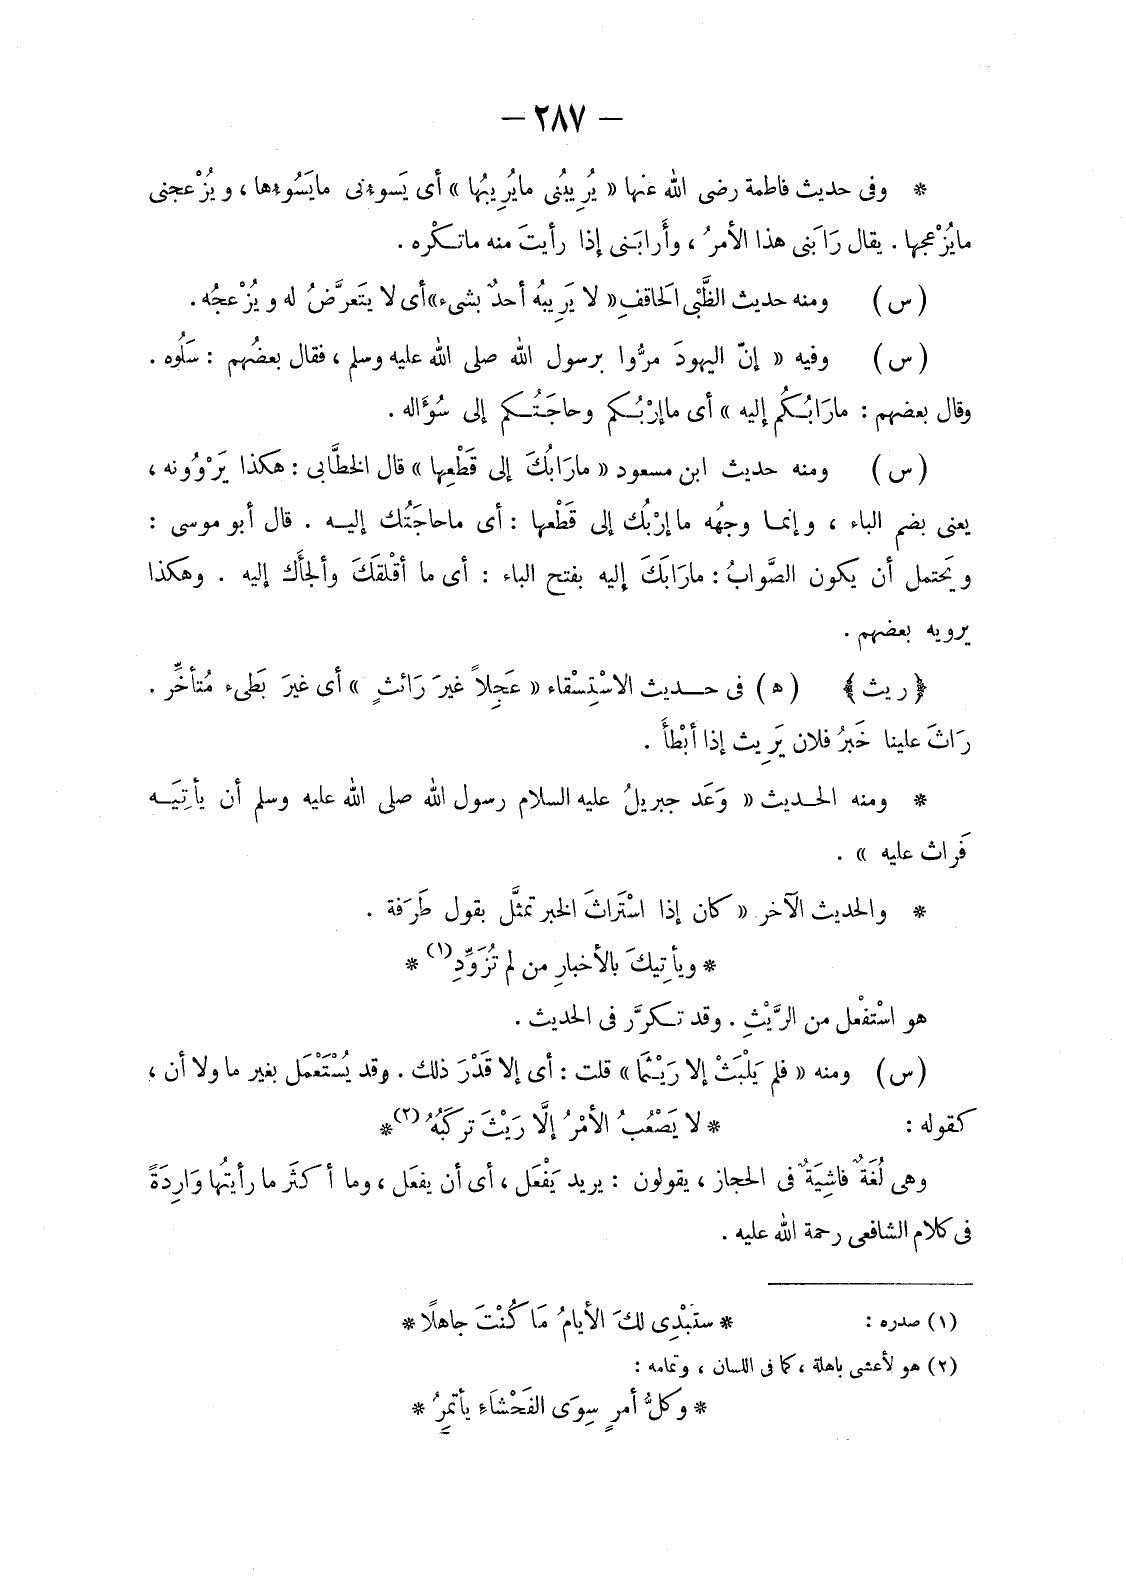 — ٢٨٧ —
* وفى حديث فاطمة رضى الله عنها « يُرِيبُنى مايُرِيبُها » أى يَسوءنى مايَسُوءها ، ويُزْعجنى
مايُزْعجها . يقال رَابَنى هذا الأمرُ ، وأَرابَنى إذا رأيتَ منه ماتكْره .
(س) ومنه حديث الظَّبْى الحَاقفِ « لا يَرِيبُه أحدٌ بشىء » أى لا يتَعرَّضُ له ويُزْعجُه .
(س) وفيه « إنّ اليهودَ مرُّوا برسول الله صلى الله عليه وسلم ، فقال بعضُهم : سَلُوه .
وقال بعضهم : مارَابُكُم إليه » أى ماإرْبُكم وحاجَتُكم إلى سُؤَاله .
(س) ومنه حديث ابن مسعود « مارَابُكَ إلى قَطْعِها » قال الخطَّابى : هكذا يَرْوُونه ،
يعنى بضم الباء ، وإنما وجهُه ماإرْبُك إلى قَطْعها : أى ماحاجَتُك إليه . قال أبو موسى :
ويَحتمل أن يكون الصَّوابُ : مارَابَكَ إليه بفتح الباء : أى ما أقْلقَكَ وألجأَك إليه . وهكذا
يرويه بعضهم .
﴿ريث﴾ (ه) فى حديث الاسْتِسْقاء « عَجِلاً غيرَ رَائثٍ » أى غيرَ بَطىء مُتأخِّر .
رَاثَ علينا خَبرُ فلان يَرِيث إذا أبْطأَ .
* ومنه الحديث « وَعَد جبريلُ عليه السلام رسول الله صلى الله عليه وسلم أن يأتِيَه
فَراث عليه » .
* والحديث الآخر « كان إذا اسْتَراثَ الخبر تمثَّل بقول طَرَفة .
* ويأتِيكَ بالأخبارِ من لم تُزَوِّدِ(١) *
هو اسْتفْعل من الرَّيْثِ . وقد تكرَّر فى الحديث .
(س) ومنه « فلم يَلْبَثْ إلا رَيْثَما » قلت : أى إلا قَدْرَ ذلك . وقد يُسْتَعْمَل بغير ما ولا أن ،
كقوله : * لا يَصْعُبُ الأمْرُ إلَّا رَيْثَ تركَبُهُ(٢) *
وهى لُغَةٌ فاشِيَةٌ فى الحجاز ، يقولون : يريد يَفْعَل ، أى أن يفعَل ، وما أكثَر ما رأيتُها وَارِدَةً
فى كلام الشافعى رحمة الله عليه .
(١) صدره : * ستَبْدِى لكَ الأيامُ مَا كُنْتَ جاهلًا *
(٢) هو لأعشى باهلة ، كما فى اللسان ، وتمامه :
* وكلُّ أمرٍ سِوَى الفَحْشَاءِ يأتمِرُ *